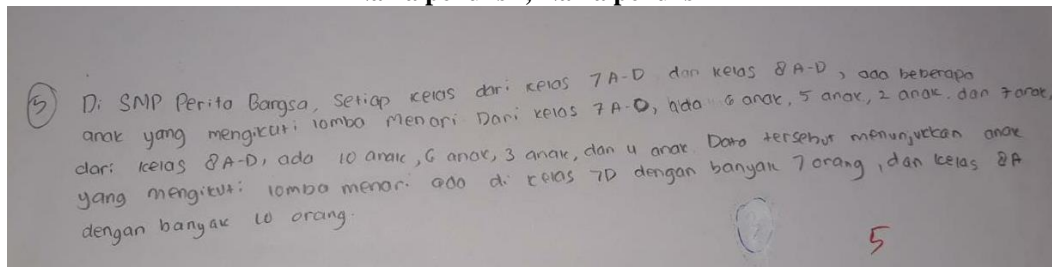 5 Di SMP Perita Bangsa, Setiap kelas dari kelas 7A-D dan kelas 8A-D, ada beberapa
anak yang mengikuti lomba menari Dari kelas 7A-D, ada 6 anak, 5 anak, 2 anak. dan 7 anak,
dari kelas 8A-D, ada 10 anak, 6 anak, 3 anak, dan 4 anak. Data tersebut menunjukkan anak
yang mengikuti lomba menari ada di kelas 7D dengan banyak 7 orang, dan kelas 8A
dengan banyak 10 orang.
5